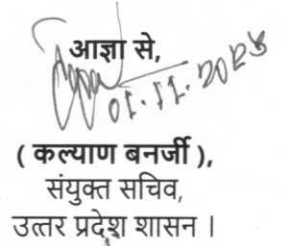 आज्ञा से,
01.11.2024
( कल्याण बनर्जी ),
संयुक्त सचिव,
उत्तर प्रदेश शासन ।